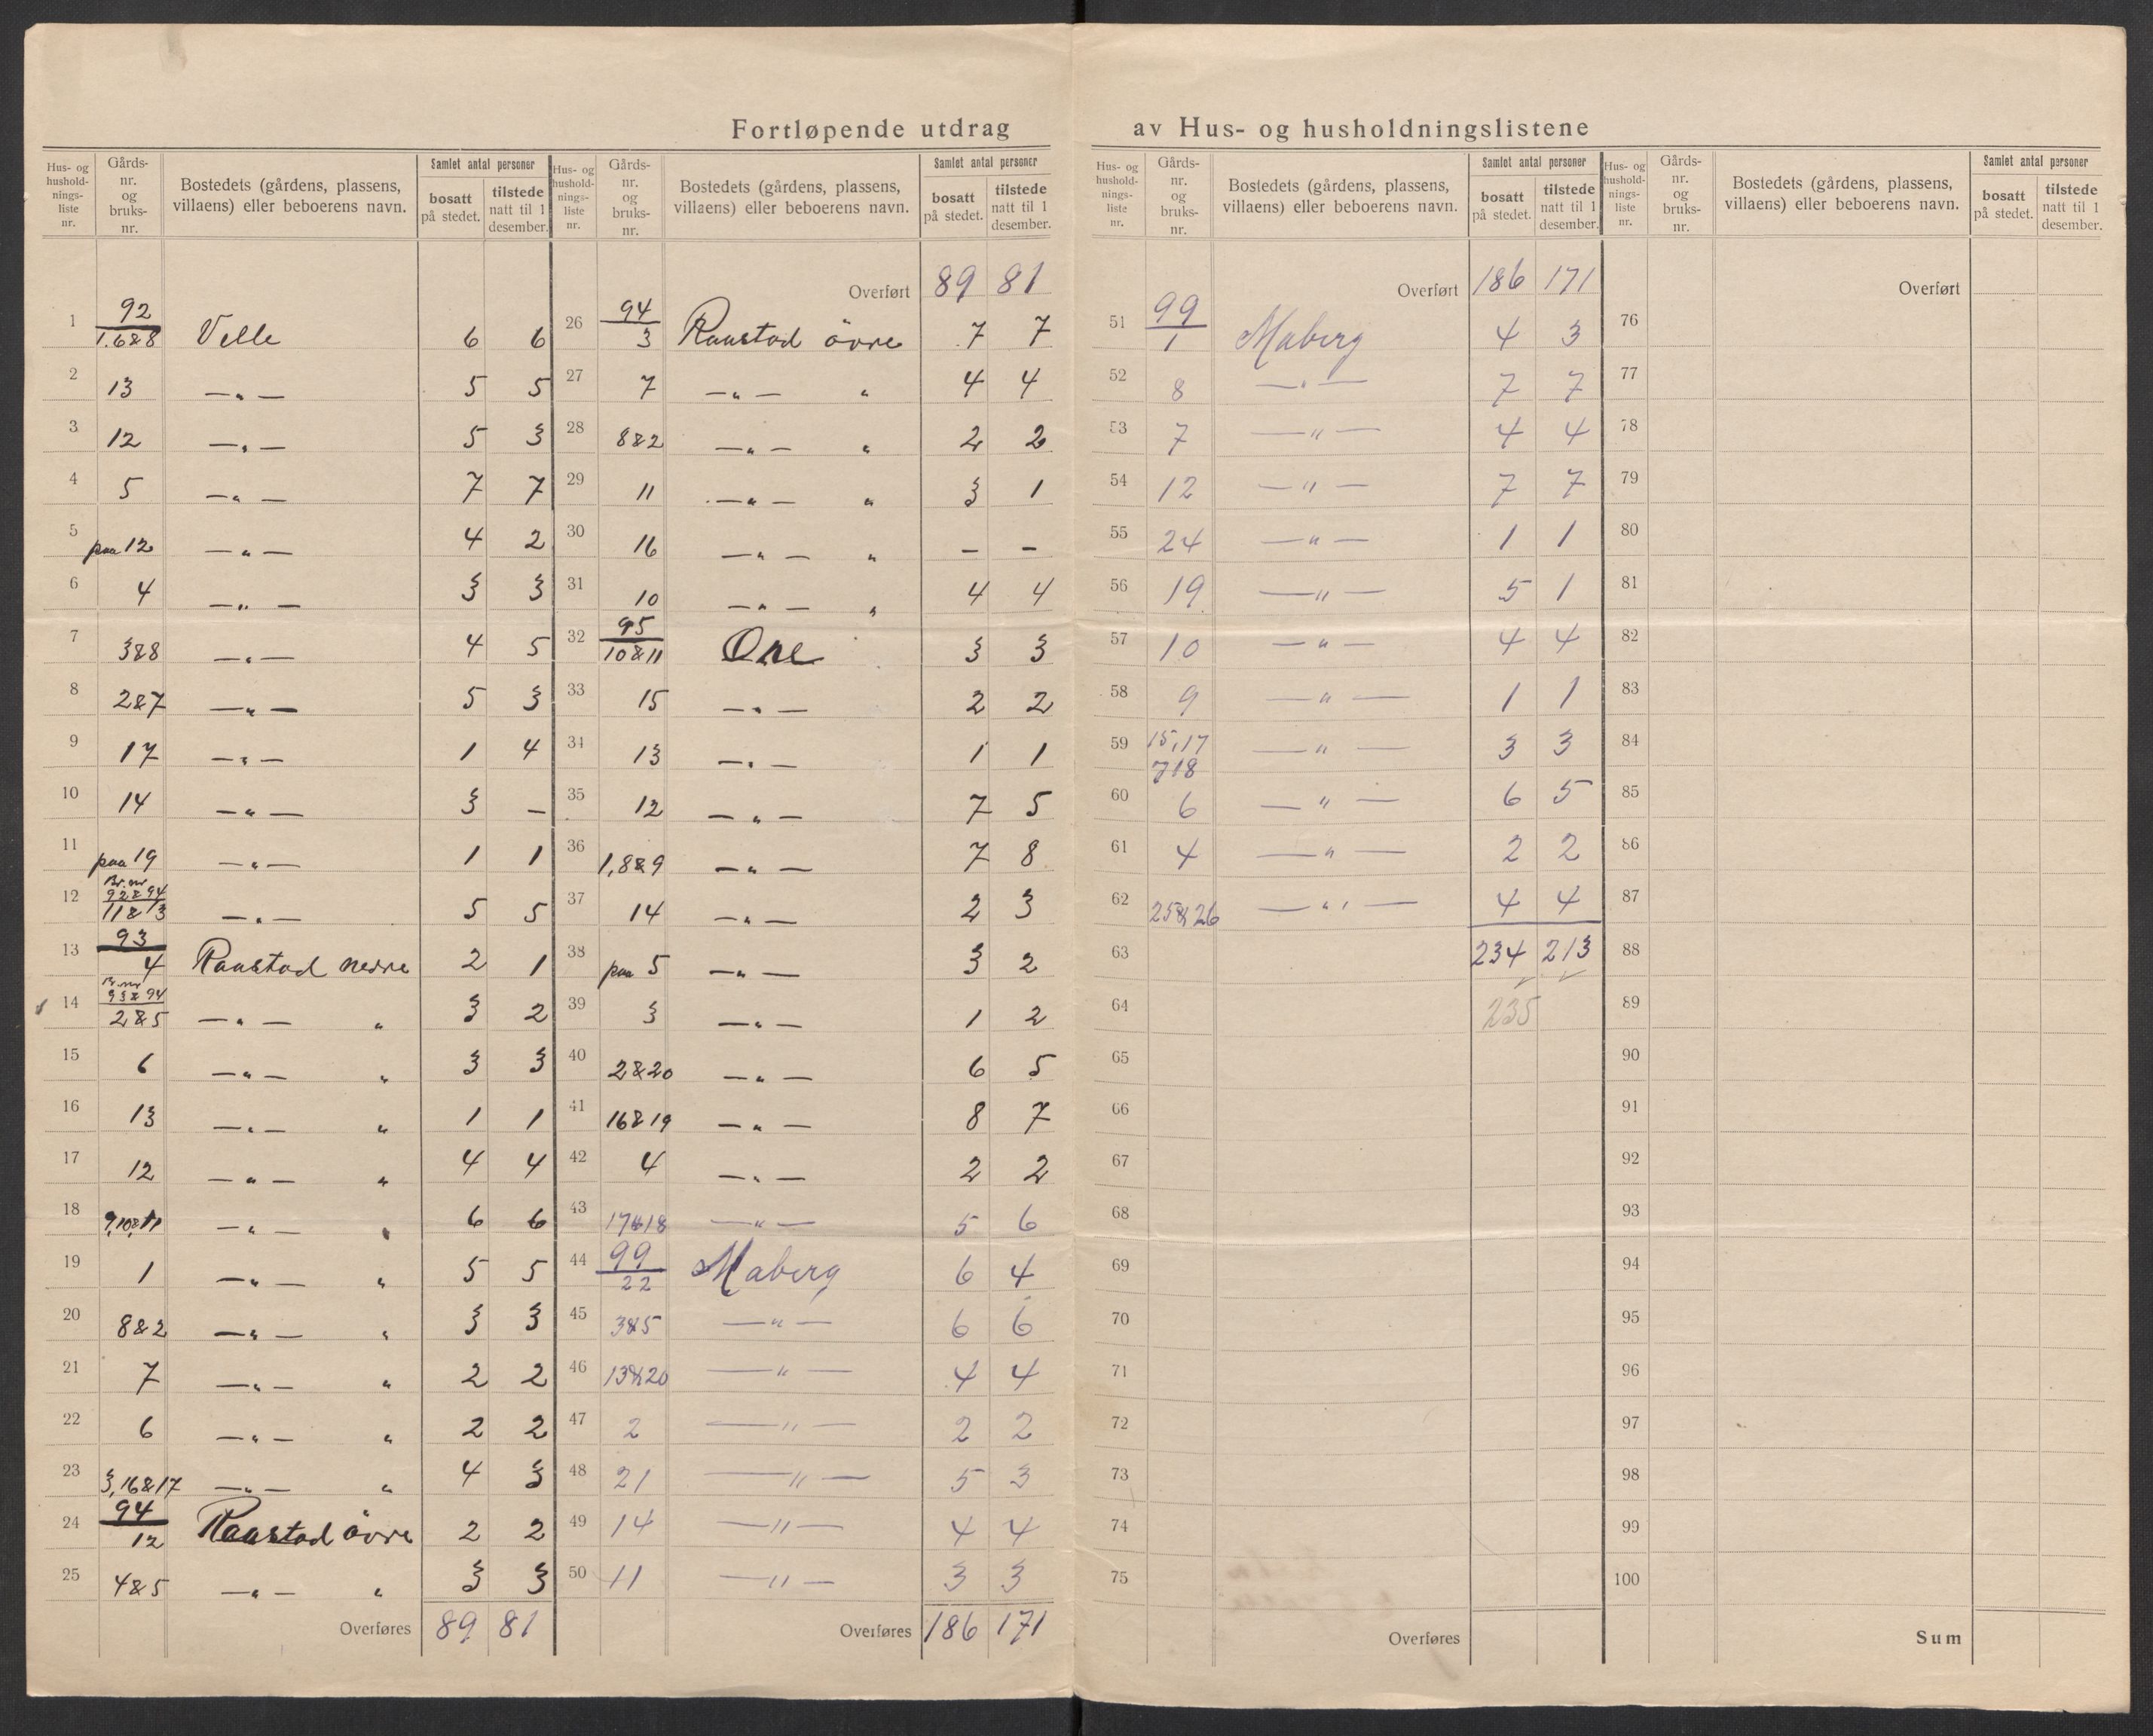 Fortløpende utdrag av Hus- og husholdningslistene
Hus- og hushold- nings- liste nr. | Gårds- nr. og bruks- nr. | Bostedets (gårdens, plassens, villaens) eller beboerens navn. | Samlet antal personer | bosatt på stedet. | tilstede natt til 1 desember.
1 92/1.6&8 Velle 6 6
2 13 —„— 5 5
3 12 —„— 5 3
4 5 —„— 7 7
5 paa 12 —„— 4 2
6 4 —„— 3 3
7 3&8 —„— 4 5
8 2&7 —„— 5 3
9 17 —„— 1 4
10 14 —„— 3 –
11 paa 19 —„— 1 1
12 Br.nr 92&94/11&13 —„— 5 5
13 93/4 Raastad nedre 2 1
14 Br.nr 93&94/2&5 —„— „ 3 2
15 6 —„— „ 3 3
16 13 —„— „ 1 1
17 12 —„— „ 4 4
18 9,10&11 —„— „ 6 6
19 1 —„— „ 5 5
20 8&2 —„— „ 3 3
21 7 —„— „ 2 2
22 6 —„— „ 2 2
23 3,16&17 —„— „ 4 3
24 94/12 Raastad övre 2 2
25 4&5 —„— „ 3 3
Overføres 89 81
Hus- og hushold- nings- liste nr. | Gårds- nr. og bruks- nr. | Bostedets (gårdens, plassens, villaens) eller beboerens navn. | Samlet antal personer | bosatt på stedet. | tilstede natt til 1 desember.
Overført 89 81
26 94/3 Raastad övre 7 7
27 7 —„— „ 4 4
28 8&2 —„— „ 2 2
29 11 —„— „ 3 1
30 16 —„— „ – –
31 10 —„— „ 4 4
32 95/10&11 One 3 3
33 15 —„— 2 2
34 13 —„— 1 1
35 12 —„— 7 5
36 1,8&9 —„— 7 8
37 14 —„— 2 3
38 paa 5 —„— 3 2
39 3 —„— 1 2
40 2&20 —„— 6 5
41 16&19 —„— 8 7
42 4 —„— 2 2
43 17&18 —„— 5 6
44 99/22 Maberg 6 4
45 3&5 —„— 6 6
46 13&20 —„— 4 4
47 2 —„— 2 2
48 21 —„— 5 3
49 14 —„— 4 4
50 11 —„— 3 3
Overføres 186 171
Hus- og hushold- nings- liste nr. | Gårds- nr. og bruks- nr. | Bostedets (gårdens, plassens, villaens) eller beboerens navn. | Samlet antal personer | bosatt på stedet. | tilstede natt til 1 desember.
Overført 186 171
51 99/1 Maberg 4 3
52 8 —„— 7 7
53 7 —„— 4 4
54 12 —„— 7 7
55 24 —„— 1 1
56 19 —„— 5 1
57 10 —„— 4 4
58 9 —„— 1 1
59 15,17 718 —„— 3 3
60 6 —„— 6 5
61 4 —„— 2 2
62 25&26 —„— 4 4
63 234 213
64 235
65
66
67
68
69
70
71
72
73
74
75
Overføres
Hus- og hushold- nings- liste nr. | Gårds- nr. og bruks- nr. | Bostedets (gårdens, plassens, villaens) eller beboerens navn. | Samlet antal personer | bosatt på stedet. | tilstede natt til 1 desember.
Overført
76
77
78
79
80
81
82
83
84
85
86
87
88
89
90
91
92
93
94
95
96
97
98
99
100
Sum